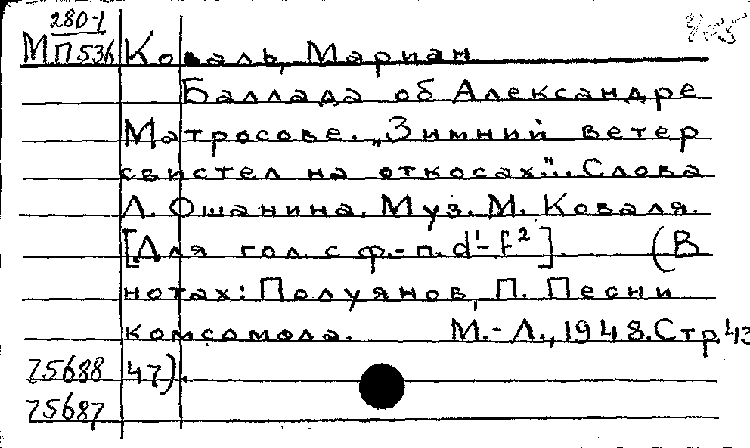 280-1
МП536 Коваль, Мариан
Баллада об Александре
Матросове. „Зимний ветер
свистел на откосах.". Слова
Л. Ошанина. Муз. М. Коваля.
[Для гол. с ф.-п. d¹-f²]. (В
нотах: Полуянов, П. Песни
комсомола. М.-Л., 1948. Стр. 43
75688 47).
75687